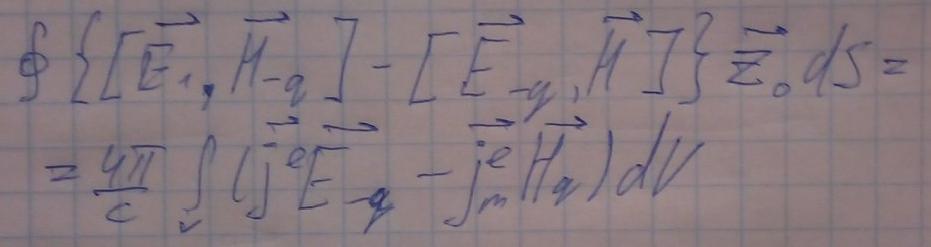 ∮ {[E⃗₁, H⃗₋q] - [E⃗₋q, H⃗]} z⃗₀ dS =
= 4π/c ∫ᵥ (j⃗ᵉ E⃗₋q - j⃗ᵉₘ H⃗q) dV